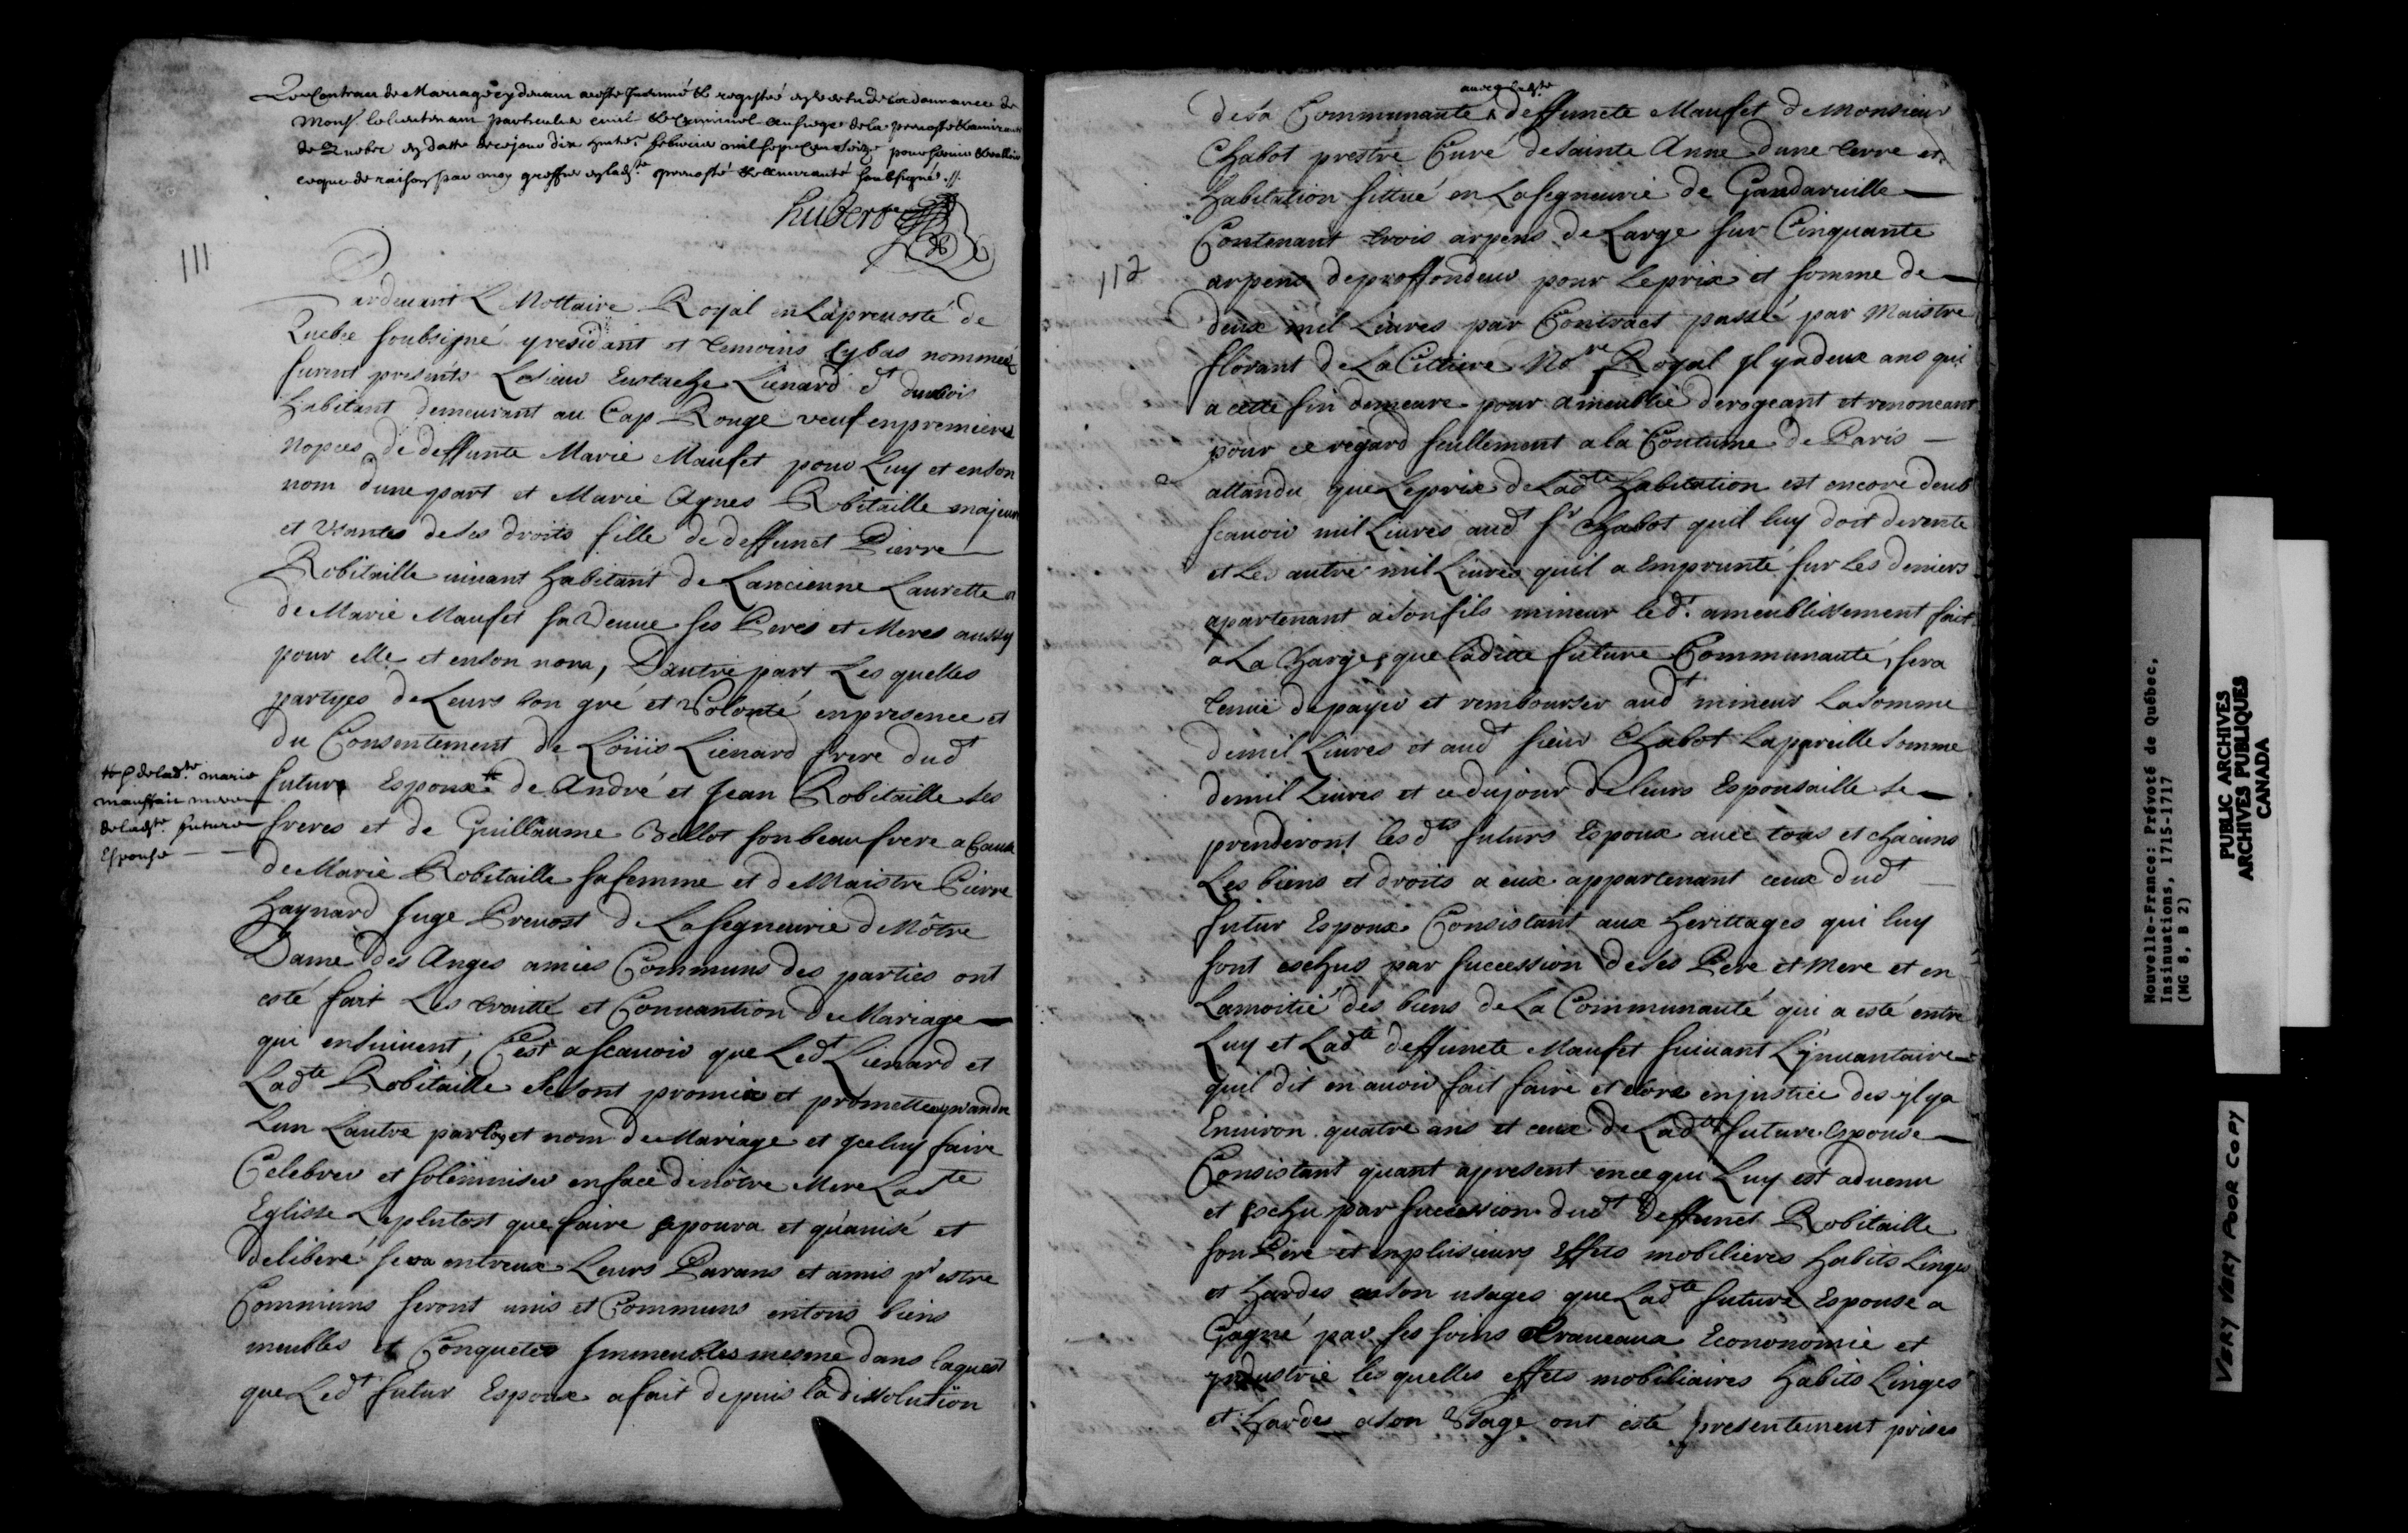 Le Contract de Mariage cy devant a esté Insinué et registré en vertu de l'ordonnance de
Mons.r le lieutenant particulier civil et Criminel au siege de la prevosté et amirauté
de Quebec en datte de ce jour dix huit.e febvrier mil sept cens seize pour servir et valloir
ce que de raison par moy greffier en lad.te prevosté et amirauté soubsigné .//.
hubert
111
Pardevant L Nottaire Royal en La prevosté de
Quebec soubsigné y residant et temoins Cy bas nommez
furent presents Le Sieur Eustache Lienard dt durbois
habitant demeurant au Cap Rouge veuf en premieres
nopces de deffunte Marie Maufet pour Luy et en son
nom dune part et Marie Agnes Robitaille majeure
et Usantes de ses droits fille de deffunct Pierre
Robitaille vivant habitant de Lancienne Laurette et
de Marie Maufet sa Veuve ses Peres et Meres aussy
pour elle et en son nom, Dautre part Les quelles
partyes de Leurs bon gré et Volonté en presence et
du Consentement de Loüis Lienard frere dudt
futur Espoux # de André et Jean Robitaille Ses
freres et de Guillaume Bellot son beau frere a Cause
de Marie Robitaille sa femme et de Maistre Pierre
haynard Juge Prevost de La segneurie de Nôtre
Dame des Anges amies Communs des parties ont
esté fait Les traitté et Convantion de Mariage
qui ensuivent, C'est a scavoir que Ledt Lienard et
Ladte Robitaille se sont promis et promettent prandre
Lun Lautre par loy et nom de Mariage et yceluy faire
Celebrer et solemniser en face de nôtre Mere Ste
Eglisse Le plutost que faire se poura et qu'avisé et
deliberé sera entreux Leurs Parans et amis pr estre
Communs seront unis et Communs en tous biens
meubles et Conquetes Immeubles mesme dans laquest
que Ledt futur Espoux a fait depuis la dissolution
# de lad.te marie
mauffait mere
de lad.te future
Espouse
112
avec lad.te
de sa Communauté deffuncte Maufet de Monsieur
Chabot prestre Curé de Sainte Anne dune terre et
habitation sittué en La segneurie de Gaudarville
Contenant trois arpens de Large sur Cinquante
arpens de proffondeur pour le prix et somme de
deux mil Livres par Contract passé par Maistre
florant de La Cetiere No.re Royal yl y a deux ans qui
a cette fin demeure pour ameublie derogeant et renonceant
pour ce regard seullement a la Coutume de Paris
attandu que Le prix de Ladte habitation est encore deub
scavoir mil Livres audt Sr Chabot quil luy doit de rente
et Les autre mil Livres quil a Emprunté sur Les deniers
apartenant a son fils mineur le dt. ameublissement fait
a La Charge, que laditte future Communauté, sera
tenue de payer et rembourser audt mineur La Somme
de mil Livres et audt sieur Chabot La pareille Somme
de mil Livres et ce du jour de leurs Espousaille Se
prenderont les dts futurs Espoux avec tous et chacuns
Les biens et droits a eux appartenant ceux dudt
futur Espoux Consistant aux herittages qui luy
sont eschus par succession de ses Pere et Mere et en
La moitié des biens de La Communauté qui a esté entre
Luy et Ladte deffuncte Maufet suivant L'ynvantaire
quil dit en avoir fait faire et clore en justice des yl ya
Environ quatre ans et ceux de Ladte future Espouse
Consistant quant apresent en ce qui Luy est advenu
et Eschu par succession dudt Deffunct Robitaille
son Pere et en plusieurs Effets mobilieres habits Linges
et hardes a son usages que Ladte future Espouse a
Gagné par ses soins travaux Econonomie et
yndustrie les quelles effets mobiliaires habits Linges
et hardes a son Usage ont esté presentement prises
Nouvelle-France: Prévoté de Québec,
Insinuations, 1715-1717
(MG 8, B 2)
PUBLIC ARCHIVES
ARCHIVES PUBLIQUES
CANADA
VERY VERY POOR COPY